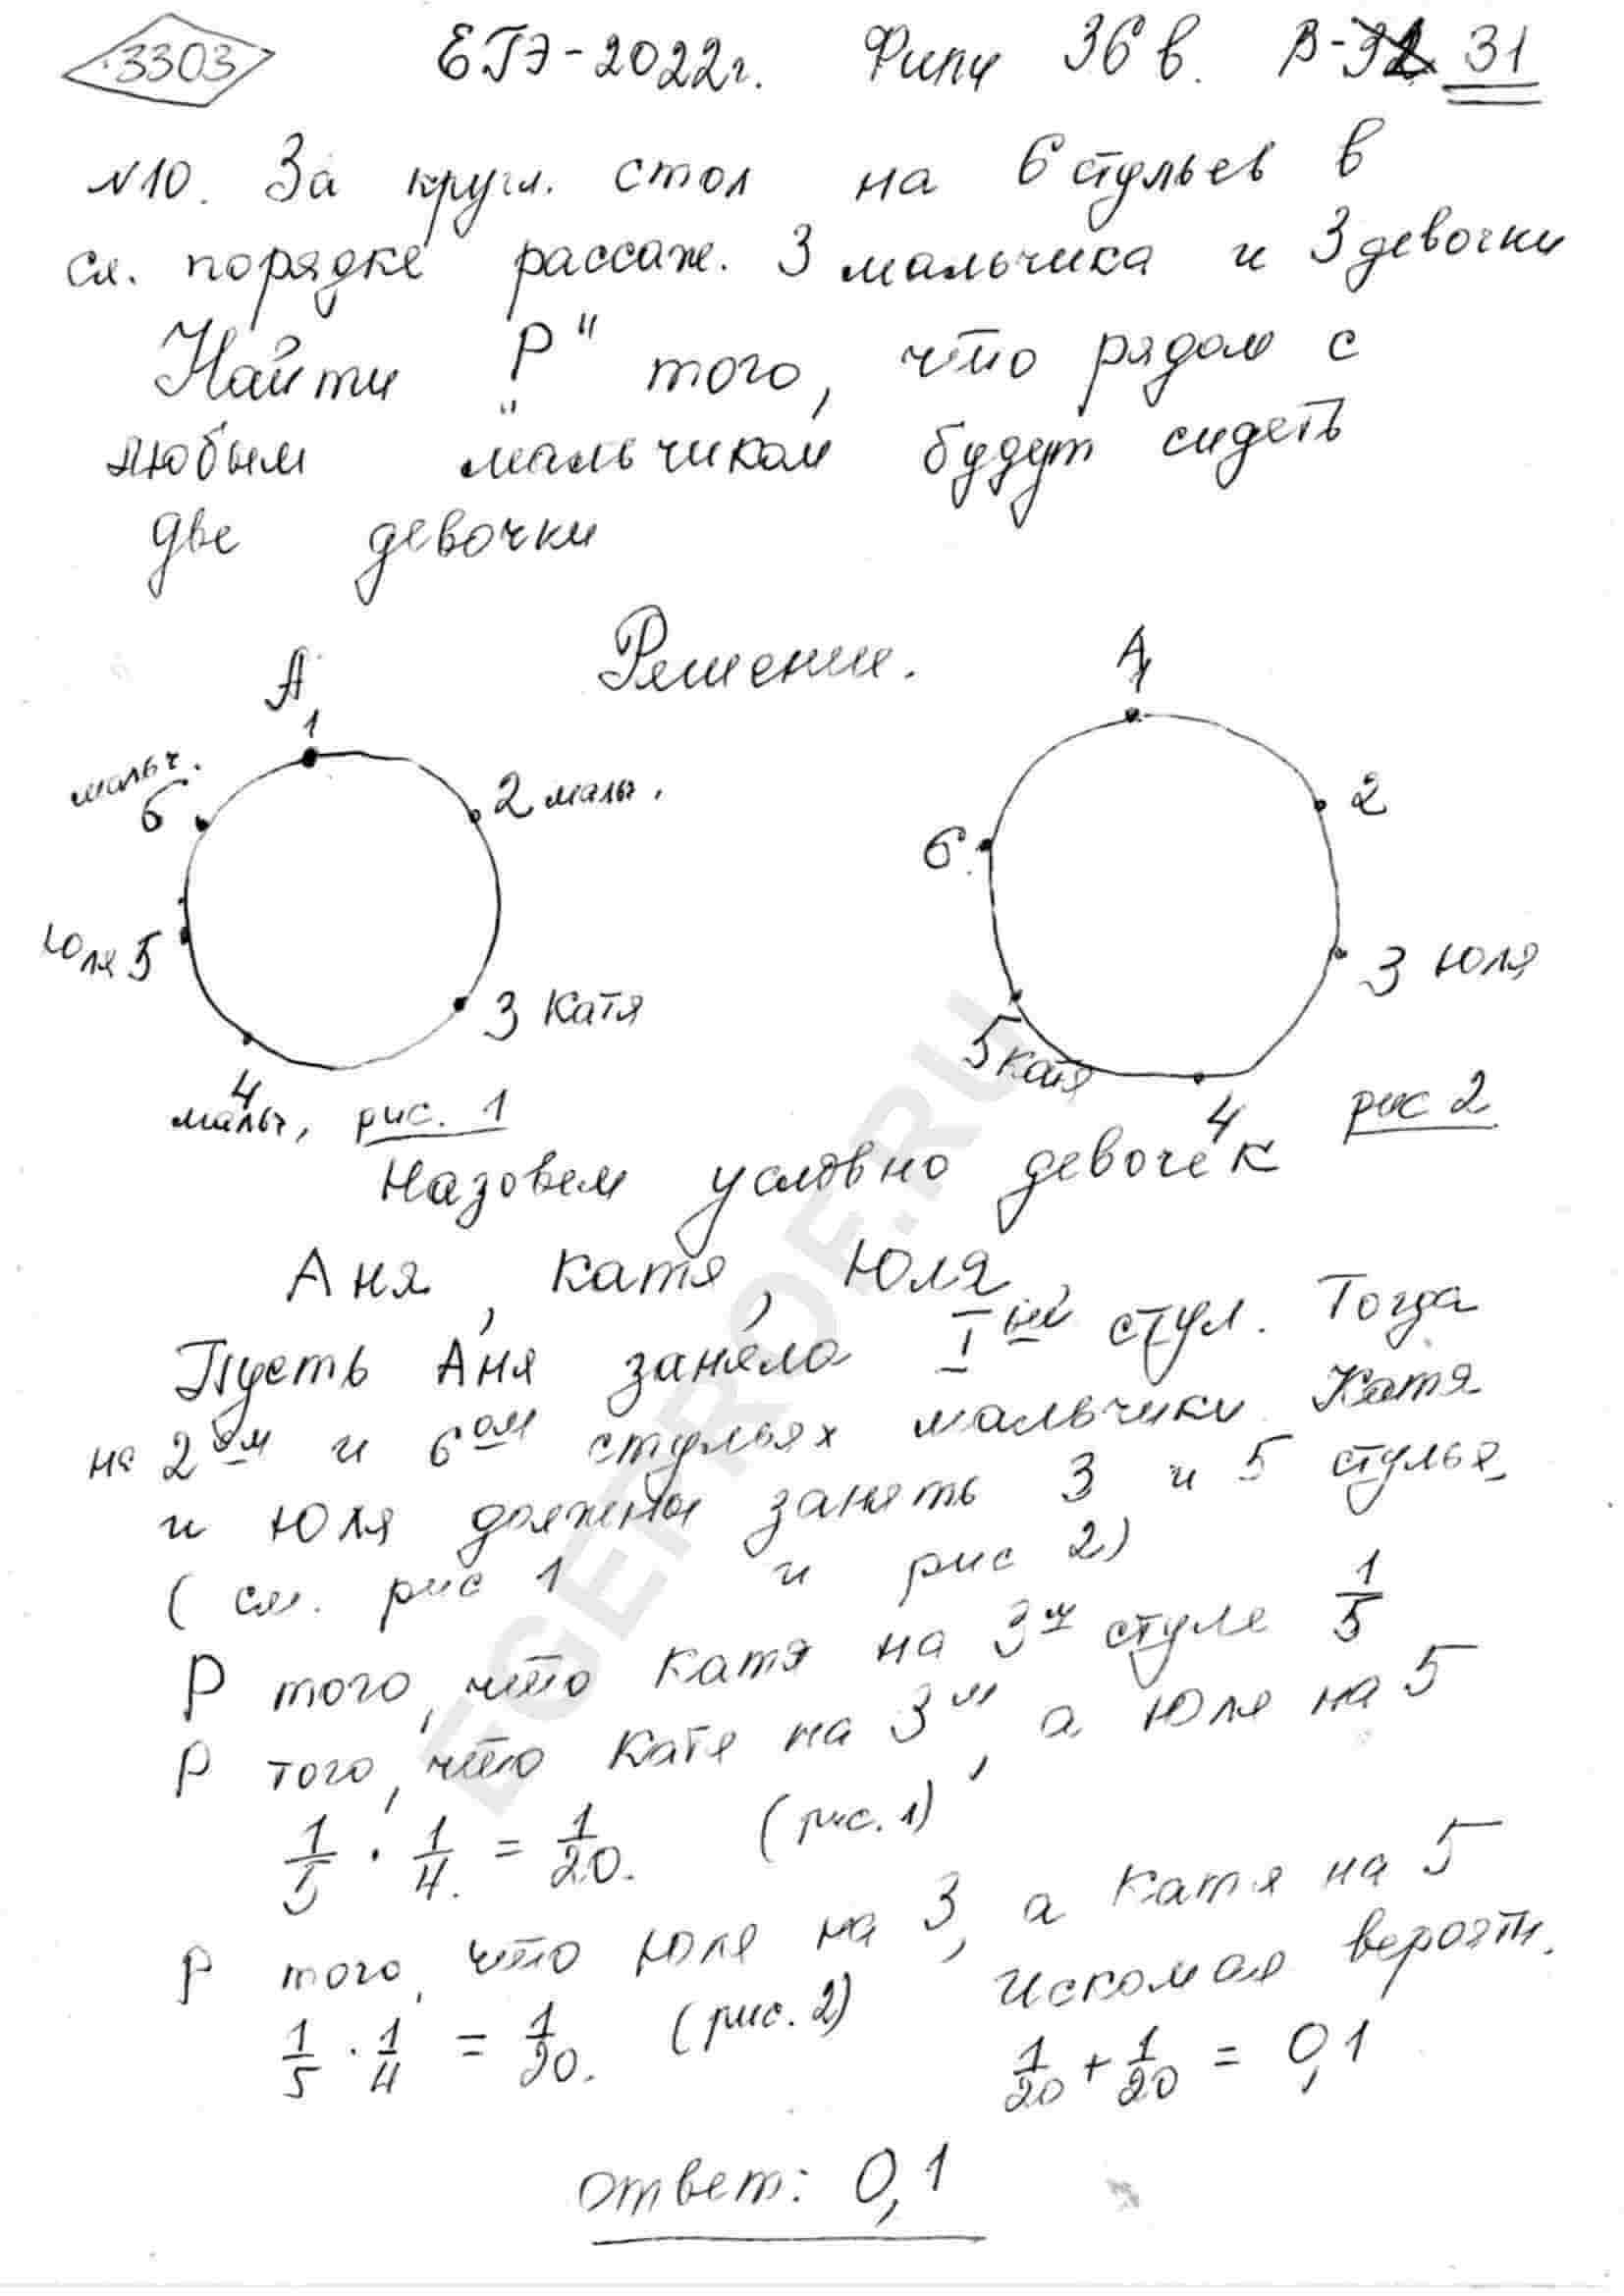 3303 ЕГЭ-2022г. Фипи 36 в. В-32 31
N10. За кругл. стол на 6 стульев в
сл. порядке рассаж. 3 мальчика и 3 девочки
Найти "P" того, что рядом с
любым мальчиком будут сидеть
две девочки
Решение.
А
1
мальч.
6
2 мальч.
Юля 5
3 Катя
4
мальч, рис. 1
А
1
2
6
3 Юля
5 Катя
4
рис 2
Назовем условно девочек
Аня, Катя, Юля
Пусть Аня заняла I ый стул. Тогда
на 2 ом и 6 ом стульях мальчики. Катя
и Юля должны занять 3 и 5 стулья
(см. рис 1 и рис 2)
P того, что Катя на 3 м стуле 1/5
P того, что Катя на 3 м, а Юля на 5
1/5 · 1/4 = 1/20. (рис. 1)
P того, что Юля на 3, а Катя на 5
1/5 · 1/4 = 1/20. (рис. 2) Искомая вероятн.
1/20 + 1/20 = 0,1
Ответ: 0,1
EGEPROF.RU